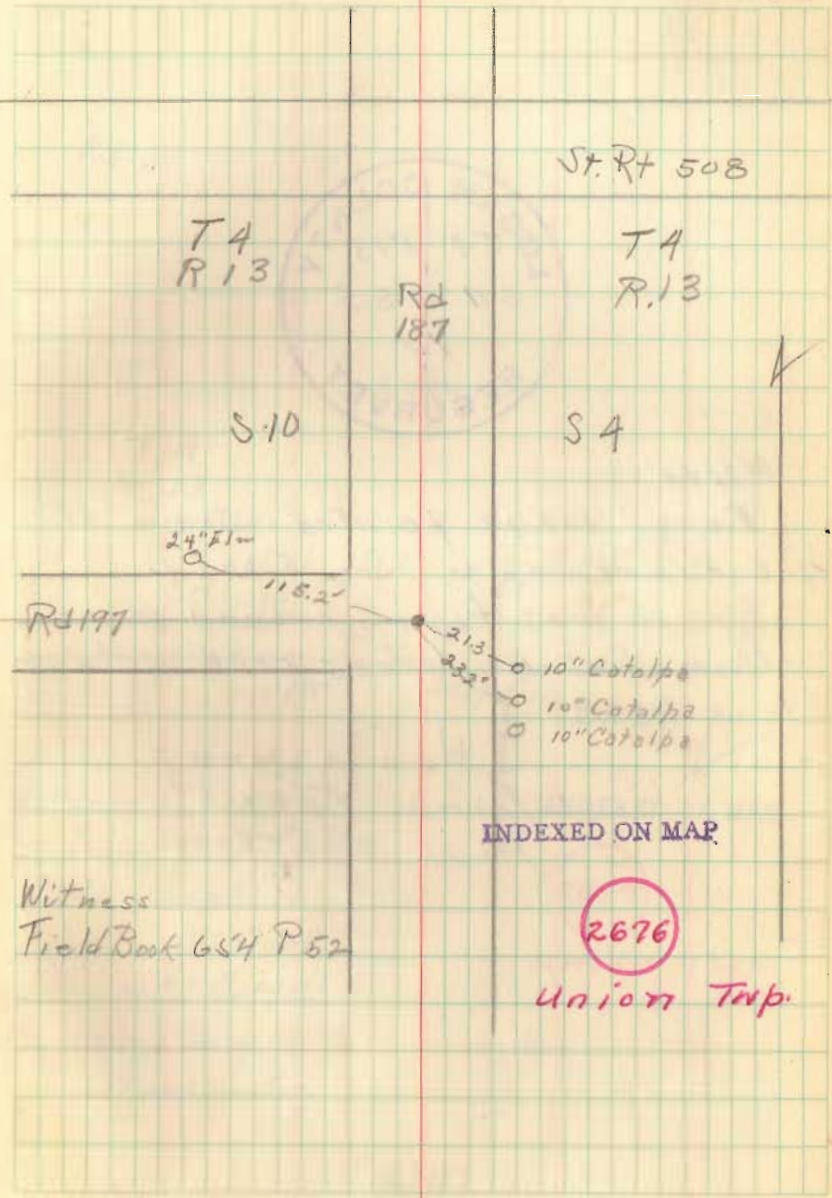 St. Rt 508
T 4
R 13
Rd
187
T 4
R. 13
S 10
S 4
24" Elm
115.2'
Rd 197
21.3
23.2'
10" Catalpa
10" Catalpa
10" Catalpa
INDEXED ON MAP
Witness
Field Book 654 P 52
2676
Union Twp.